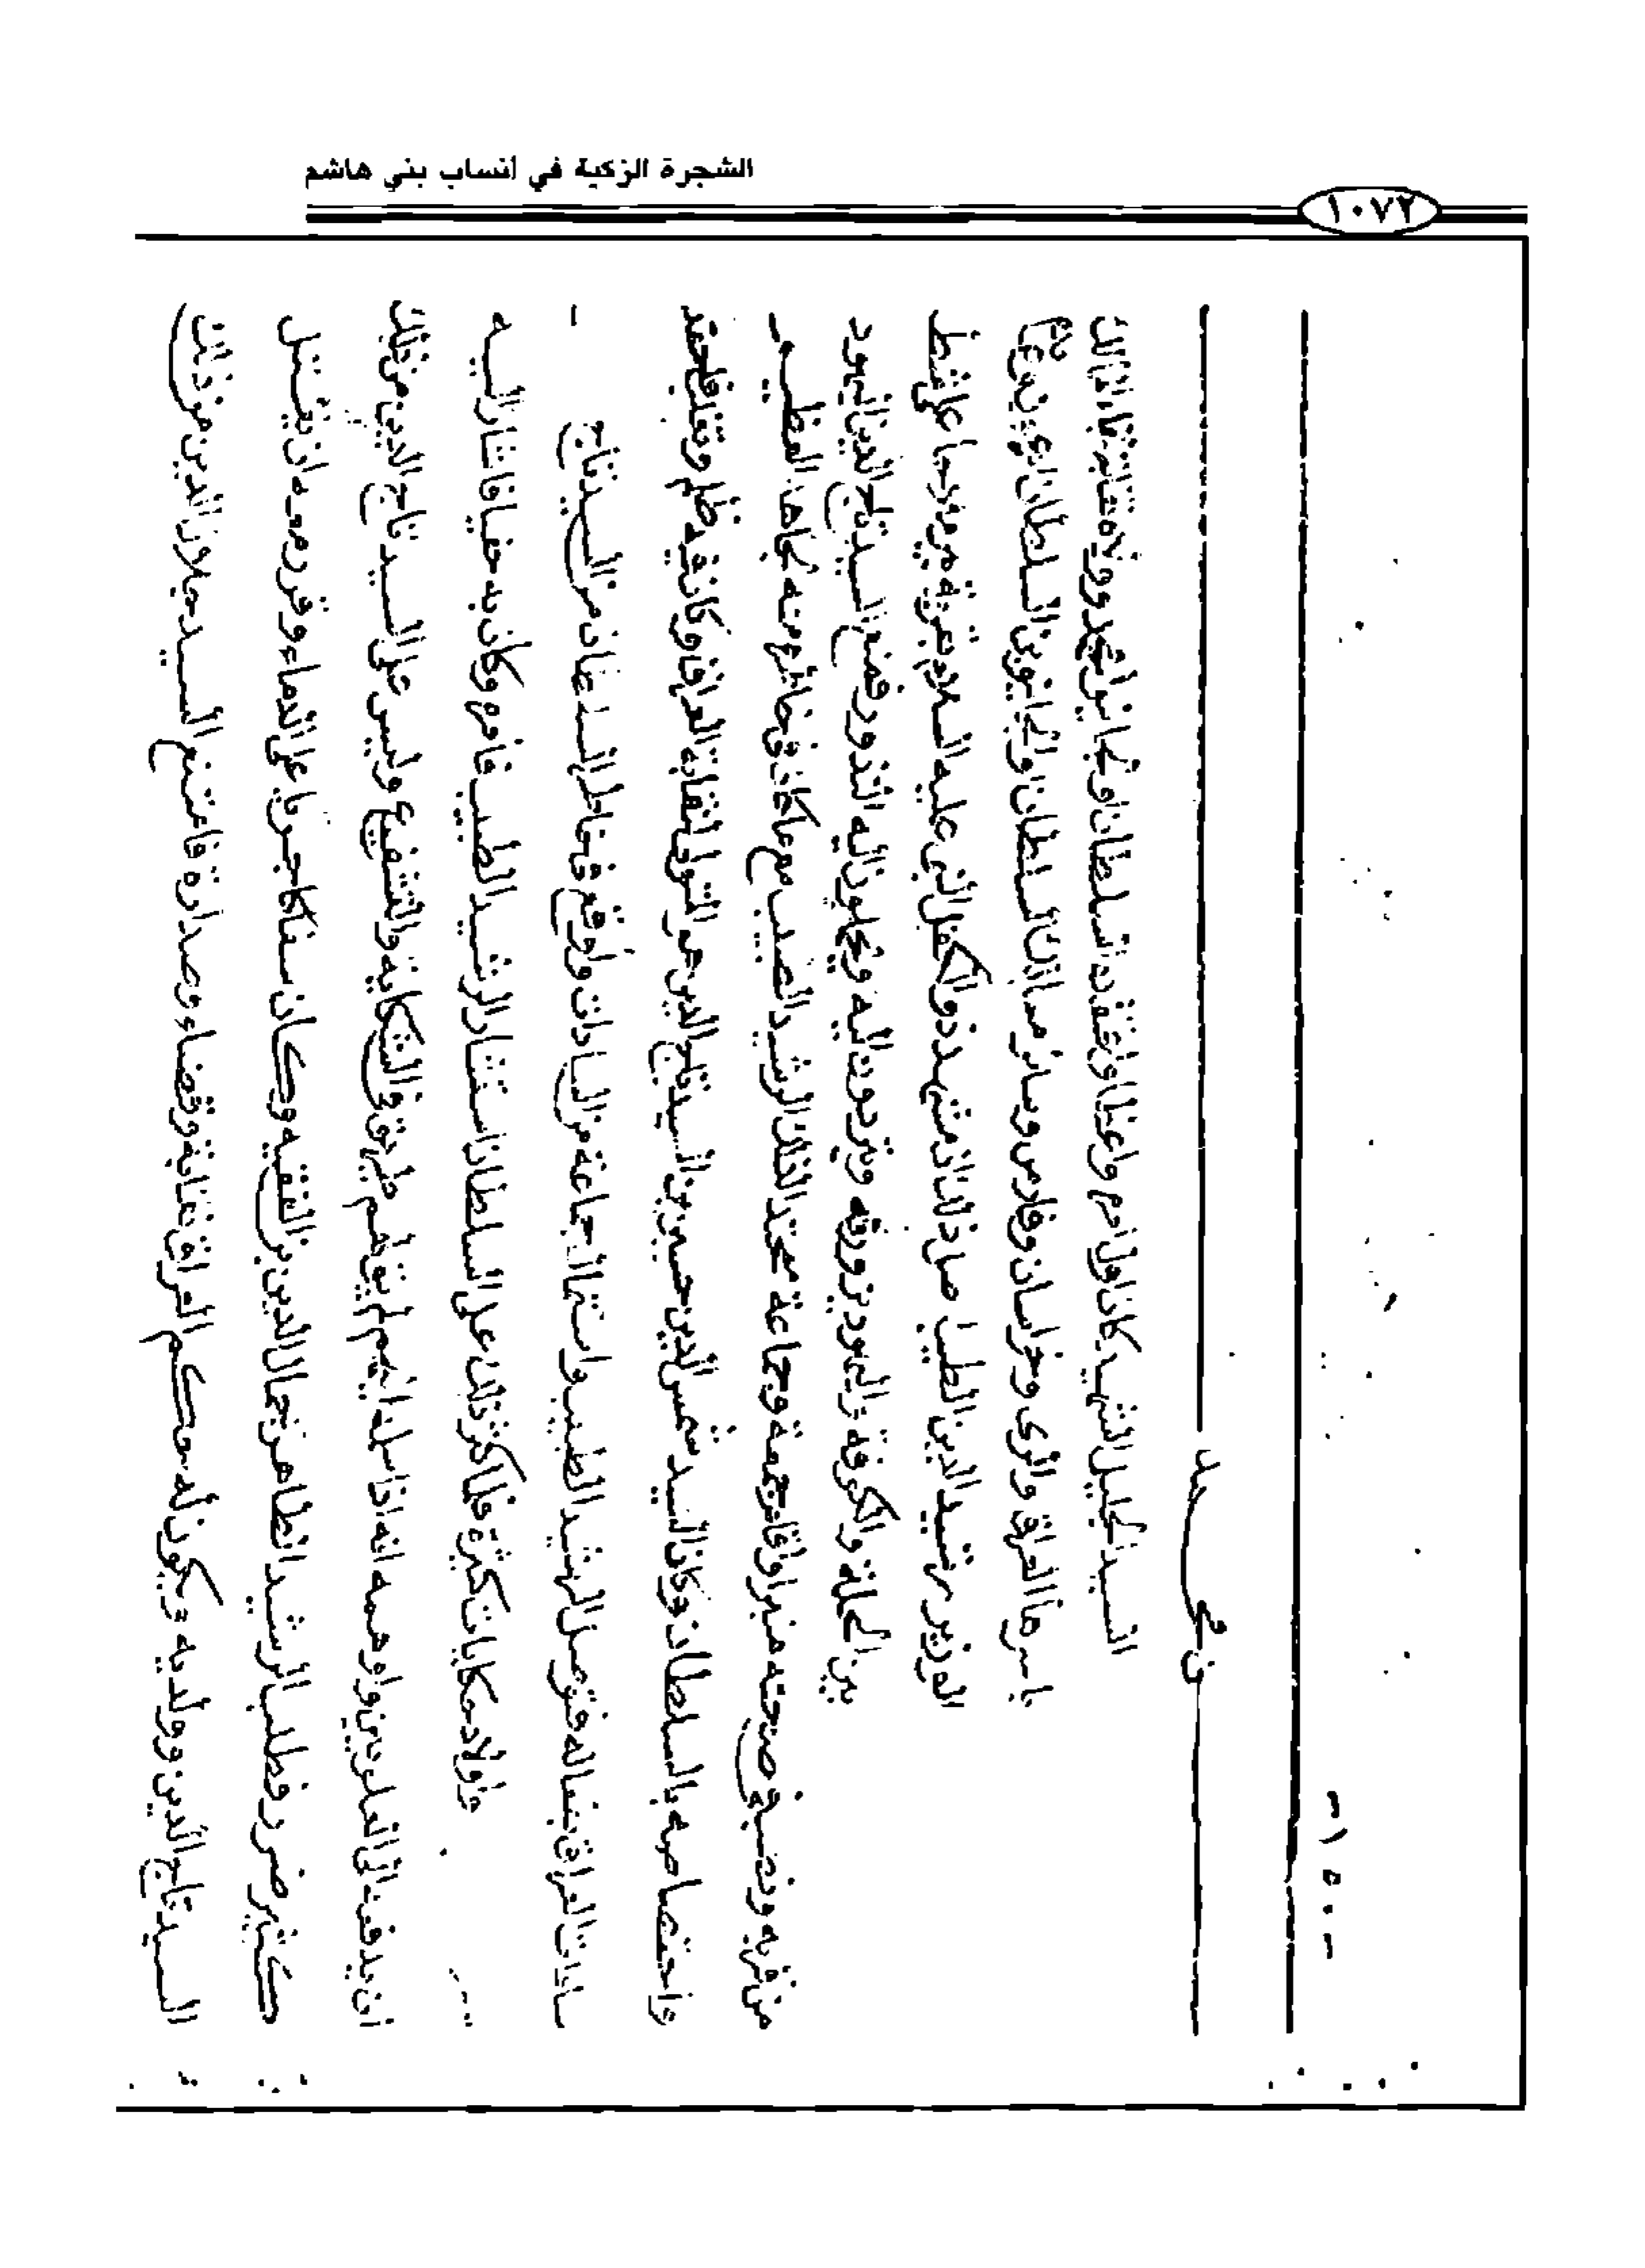 الشجرة الزكية في أنساب بني هاشم
١٠٧٢
-١٥٠-
السيد الجليل الشهيد كان اول امره واعظا واعتقده السلطان اولجايتو محمد وولاه نقابة نقباء الممالك
باسرها العراق والرى وخراسان وفارس وسائر ممالك السلطان اولجايتو بن السلطان
الوزير رشيد الدين الطبيب ان مشهد ذو الكفل النبى عليه السلام بقرية بير ملاحا على شط
بين الحلة والكوفة واليهود يزورونه ويترددون اليه ويحملون اليه النذور فمنع السيد تاج الدين اليهود
من قربه ونصب فى صبيحته منبرا واقام جمعة وجماعة فحقد لذلك الرشيد الطبيب مع ما كان فى خاطره منه بجاهه العظيم
واختصاصه بالسلطان وكان السيد شمس الدين حسين بن السيد تاج الدين هو المتولى لنقابة العراق وكان فيه ظلم وتغلب فحقد
سادات العراق بافعاله فتوصل الرشيد الطبيب واستمال جماعة من السادات واوقع فى خاطر السلطان من السيد تاج
واولاده حكايات كثيرة فلما كثر ذلك على السلطان استشار الرشيد الطبيب فامره وكان به حفيا فاشار اليه
ان يدفعه الى العلويين واوهمه انه اذا سلمه اليهم لم يبق لهم طريق فى الشكاية والتشنيع وليس على السيد تاج الدين من ذلك
كثير ضرر فطلب الرشيد الطاهر جلال الدين بن الفقيه وكان سفاكا جريا على الدماء وقرر معه ان يقتل
السيد تاج الدين وولديه ويكون له حكم العراق نقابة وقضاء وصدارة فامتنع السيد جلال الدين من ذلك